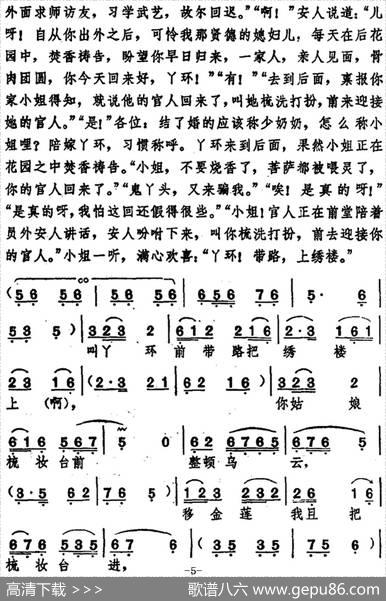 外面求师访友，习学武艺，故尔回迟。”“啊！”安人说道：“儿
呀！自从你出外之后，可怜我那贤德的媳妇儿，每天在后花
园中，焚香祷告，盼望你早日归来，一家人，亲人见面，骨
肉团圆，你今天回来好，丫环！”“有！”“去到后面，禀报你
家小姐得知，就说他的官人回来了，叫她梳洗打扮，前来迎接
她的官人。”“是！”各位：结了婚的应该称少奶奶，怎么称小
姐哩？陪嫁丫环，习惯称呼。丫环来到后面，果然小姐正在
花园之中焚香祷告。“小姐，不要烧香了，菩萨都被喂灵了，
你的官人回来了。”“鬼丫头，又来骗我。”“唉！是真的呀！”
“是真的呀，我怕这回还假得很些。”“小姐！官人正在前堂陪着
员外安人讲话，安人吩咐下来，叫你梳洗打扮，前去迎接你
的官人。”小姐一听，满心欢喜：“丫环！带路，上绣楼。”
(56 56 | 56 56 | 656 76 | 5· 6
53 5) | 323 2 | 612 2 | 2·3 161 |
叫丫 环前带路把 绣 楼
23 16 | (2·3 21 | 62 12) | 323 2
上 (啊)， 你姑 娘
616 567 | 5 0 | 62 6765 | 676 5
梳 妆台前 整顿乌 云，
(3·5 62 | 76 5) | 323 232 | 26 16
移金莲 我且 把
616 535 | 67 6 | (35 35 | 75 6)
梳 妆 台 进，
-5-
高清下载 >>>
歌谱八六 www.gepu86.com